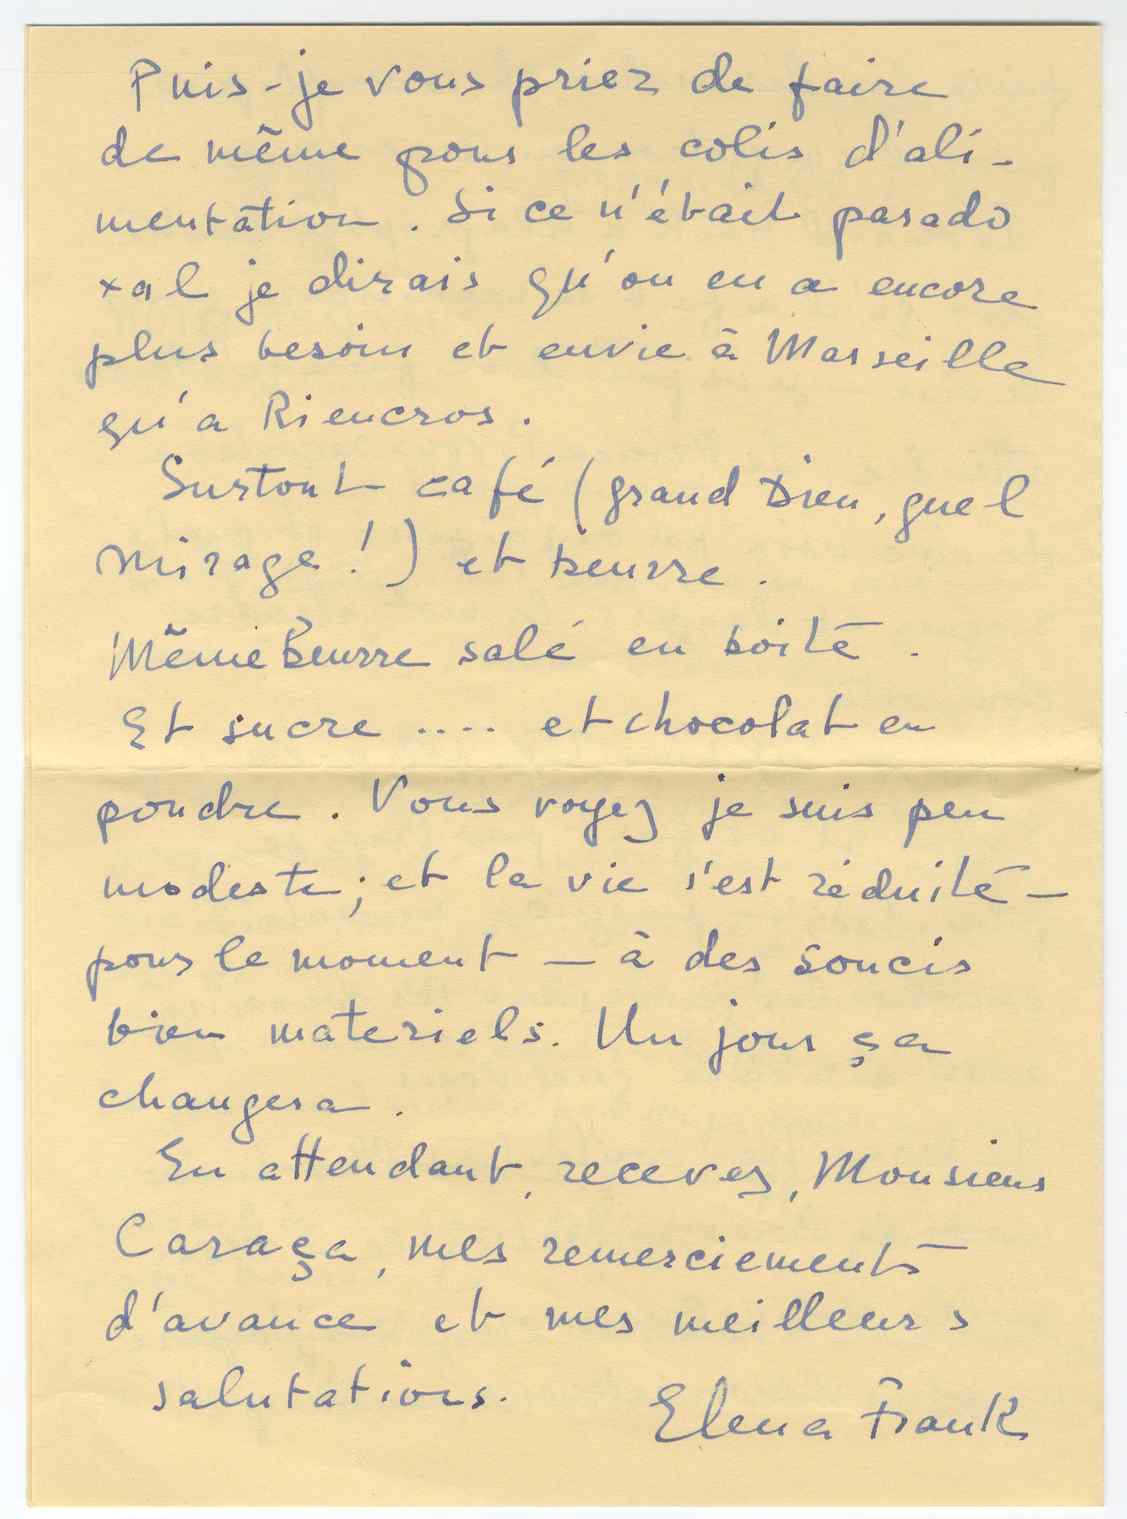 Puis-je vous priez de faire
de même pour les colis d'ali-
mentation. Si ce n'était parado
xal je dirais qu'on en a encore
plus besoin et envie à Marseille
qu'a Riencros.
Surtout café (grand Dieu, quel
mirage!) et beurre.
Même Beurre salé en boite.
Et sucre .... et chocolat en
poudre. Vous voyez je suis peu
modeste; et la vie s'est réduite -
pour le moment - à des soucis
bien materiels. Un jour ça
changera.
En attendant, recevez, Monsieur
Caraça, mes remerciements
d'avance et mes meilleurs
salutations.
Elena Frank